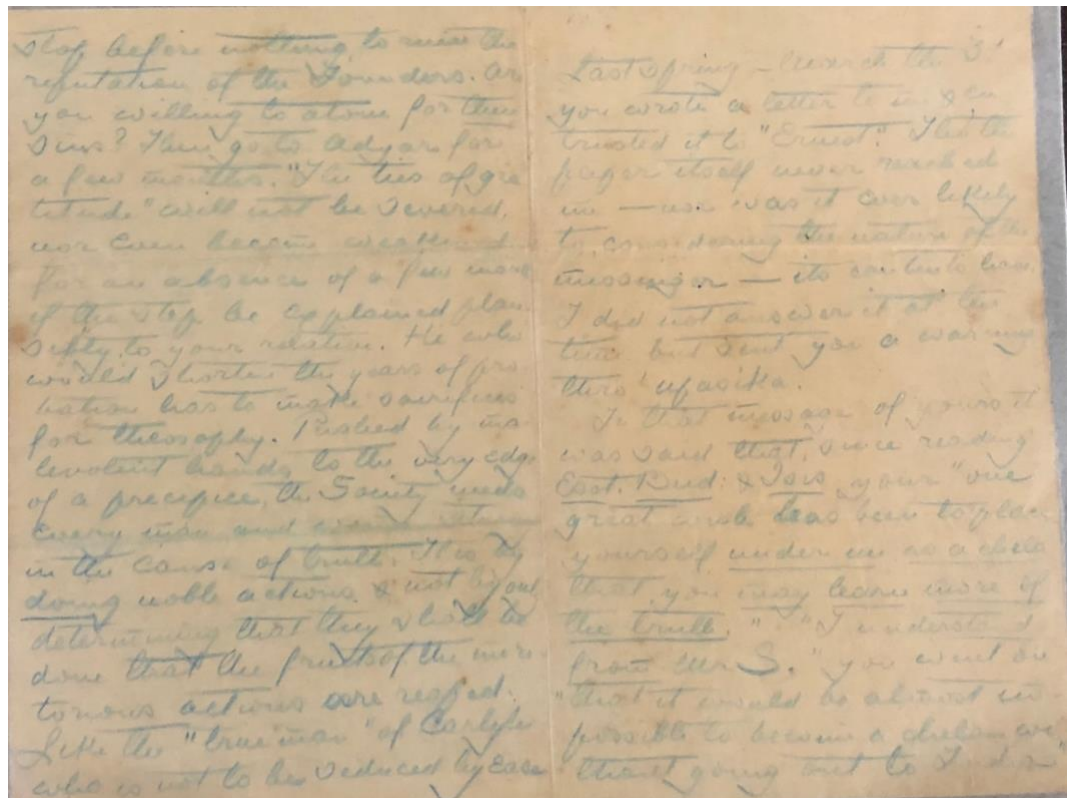 stop before nothing to ruin the
reputation of the Founders. Are
you willing to atone for their
sins? Then go to Adyar for
a few months. "The ties of gra
titude" will not be severed,
nor even become weakened
for an absence of a few months
if the step be explained plau
sibly to your relation. He who
would shorten the years of pro
bation has to make sacrifices
for theosophy. Pushed by ma
levolent hands to the very edge
of a precipice, the Society needs
every man and woman strong
in the cause of truth. It is by
doing noble actions & not by only
determining that they shall be
done that the fruits of the meri-
torious actions are reaped.
Like the "true man" of Carlyle
who is not to be seduced by ease
Last spring — March the 3d
you wrote a letter to me & en
trusted it to "Ernest". Tho' the
paper itself never reached
me — nor was it ever likely
to, considering the nature of the
messenger — its contents have.
I did not answer it at the
time but sent you a warning
thro' Upasika.
In that message of yours it
was said that, since reading
Esot. Bud: & Isis your "one
great wish has been to place
yourself under me as a chela
that you may learn more of
the truth." "I understand
from Mr. S." you went on
"that it would be almost im-
possible to become a chela wi
thout going out to India"